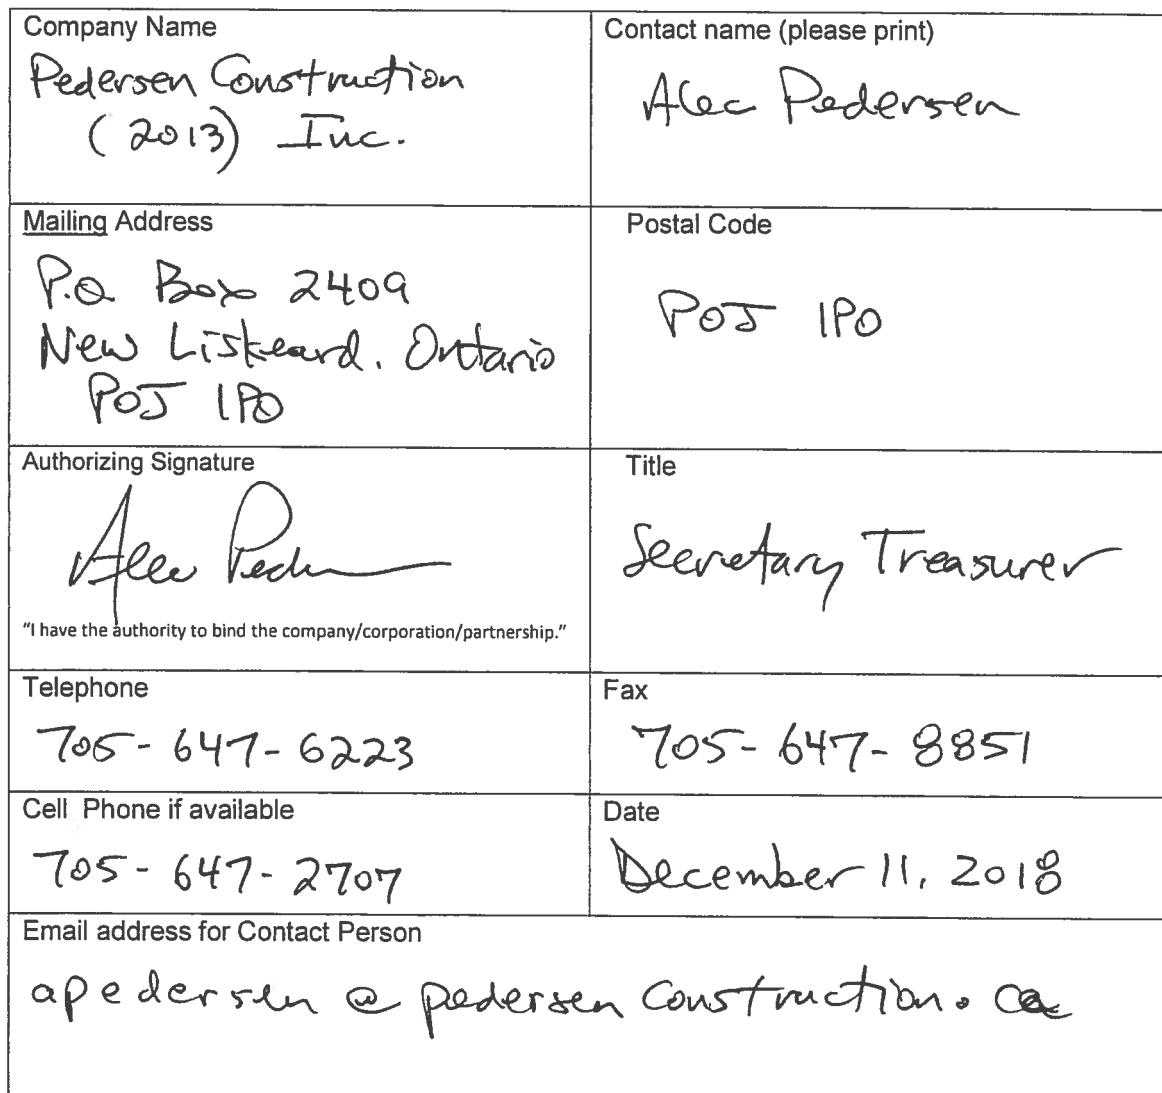 Company Name
Pedersen Construction
(2013) Inc.
Contact name (please print)
Alec Pedersen
Mailing Address
P.O. Box 2409
New Liskeard, Ontario
P0J 1P0
Postal Code
P0J 1P0
Authorizing Signature
Alec Peder
"I have the authority to bind the company/corporation/partnership."
Title
Secretary Treasurer
Telephone
705-647-6223
Fax
705-647-8851
Cell Phone if available
705-647-2707
Date
December 11, 2018
Email address for Contact Person
apedersen@pedersenconstruction.ca